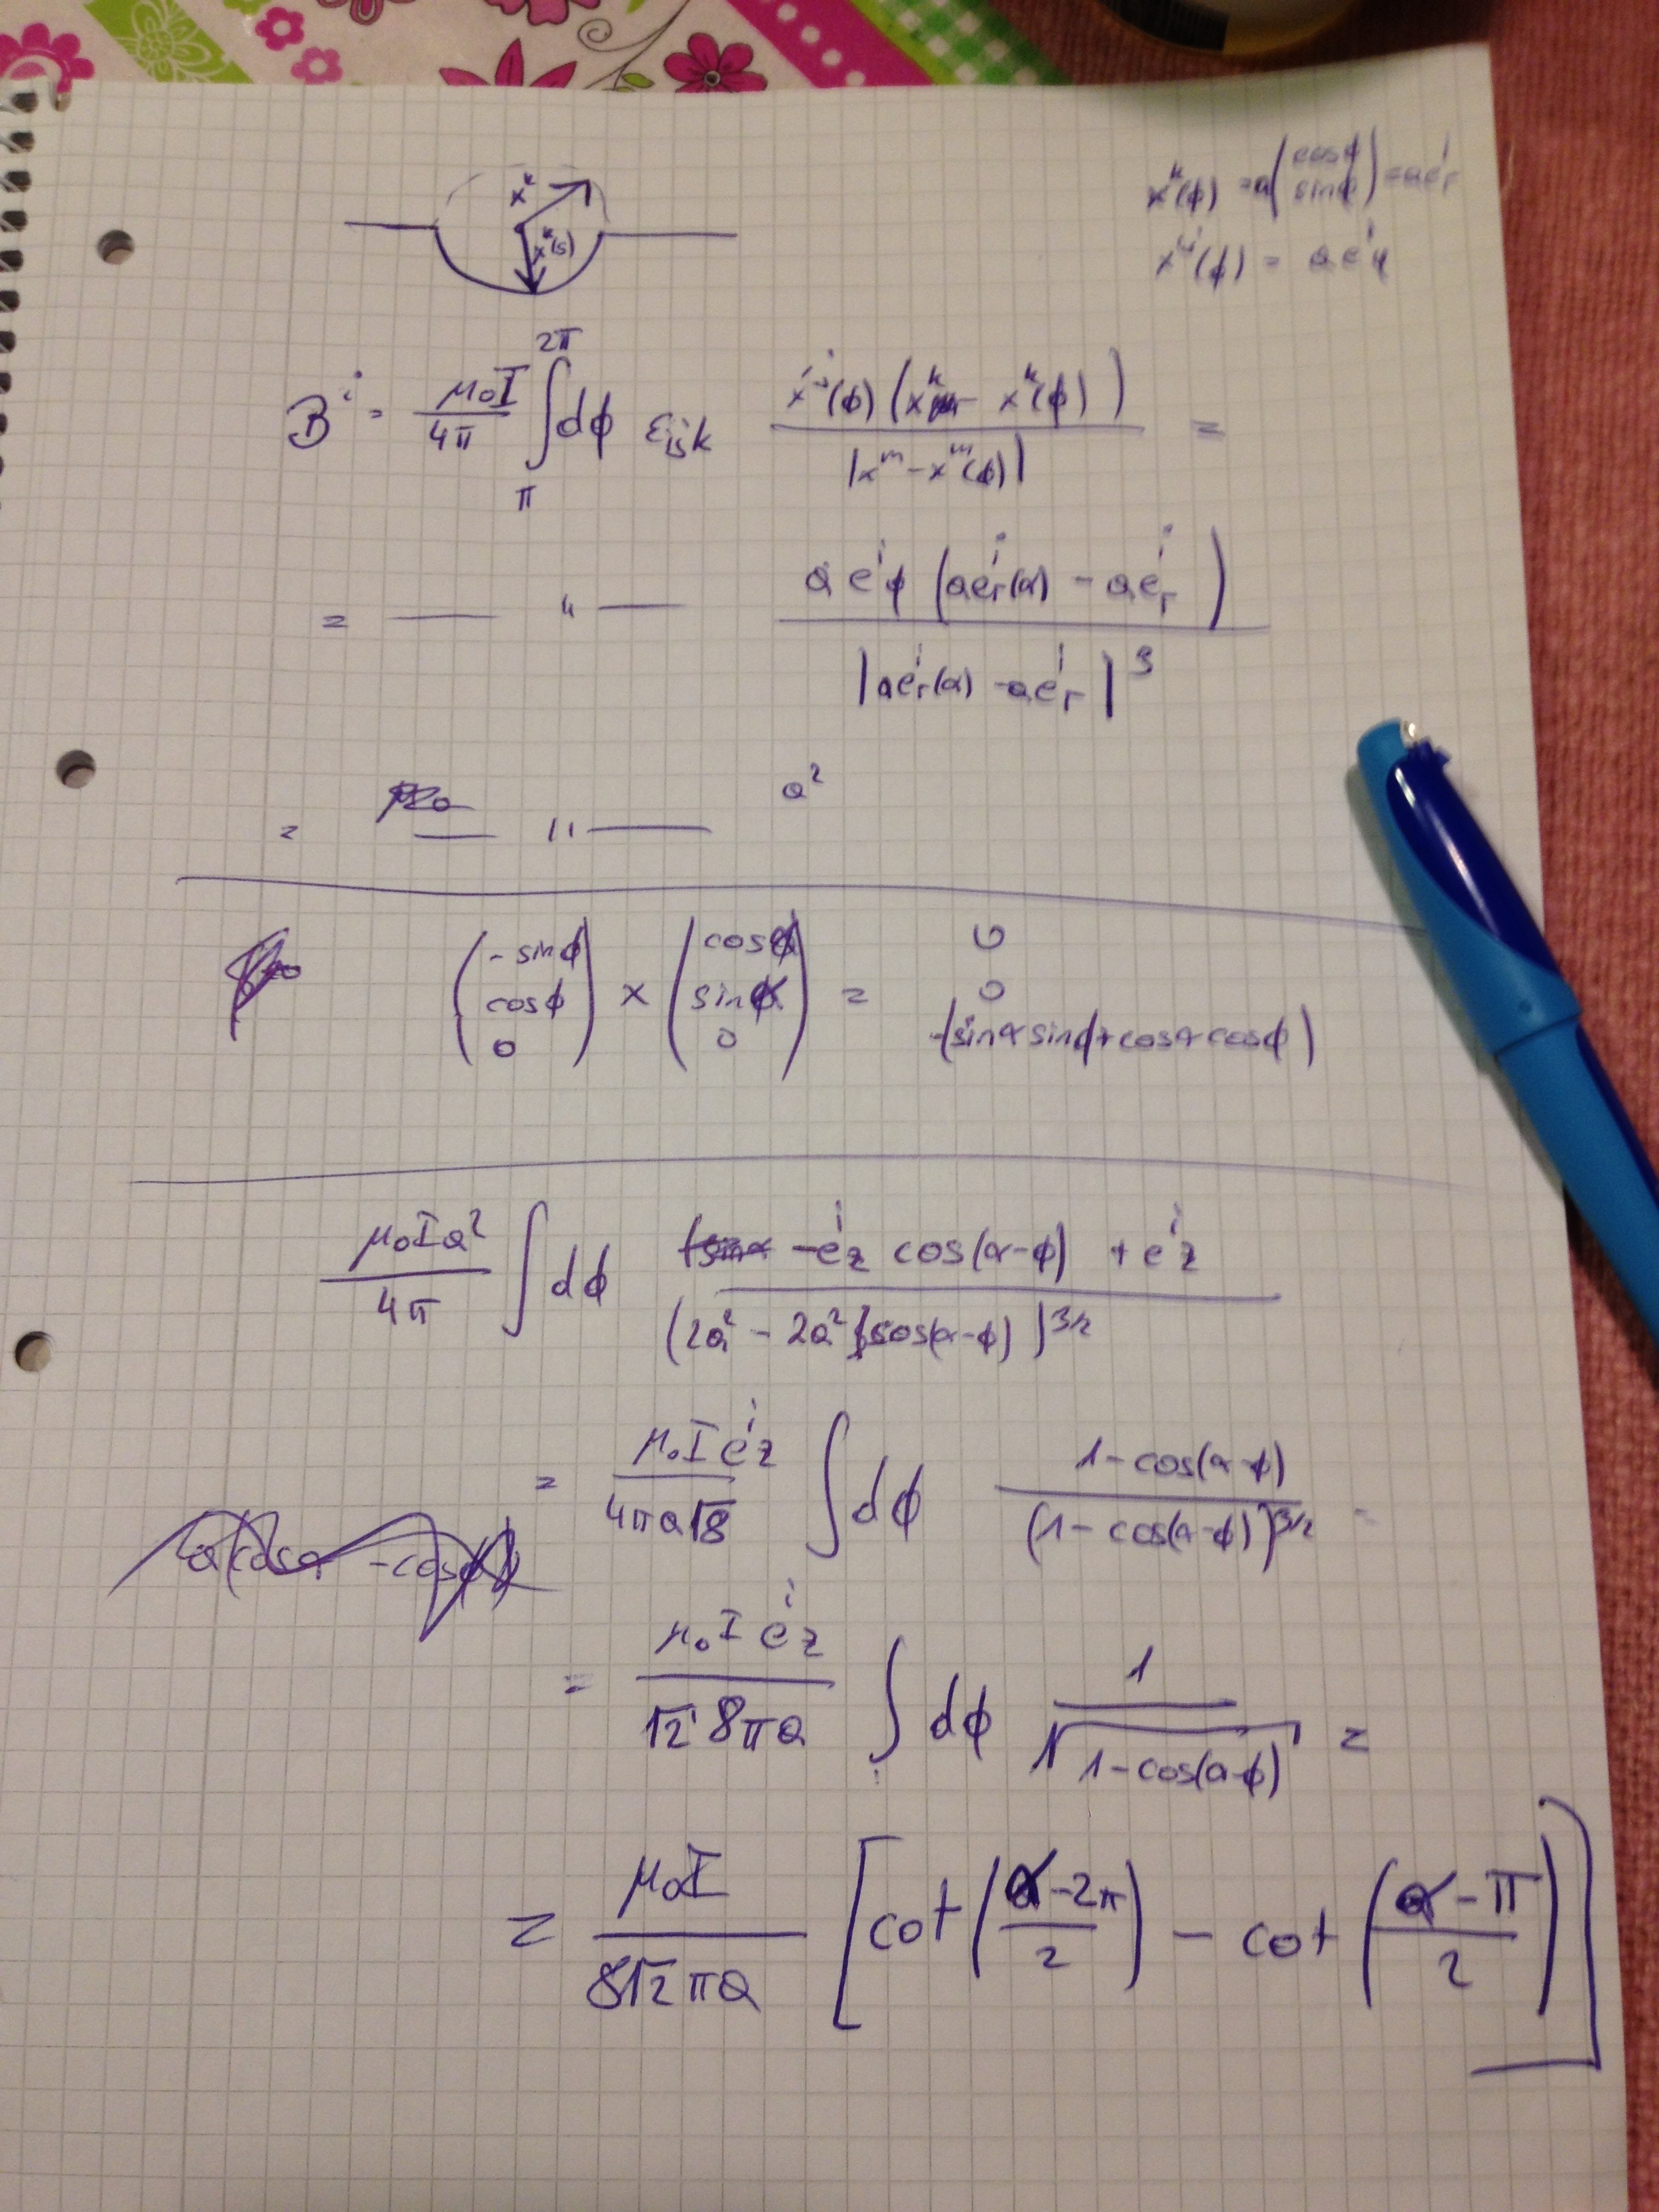 x^k
x^k(s)
x^k(ϕ) = a(cosϕ sinϕ) = ae^i_r
x'^i(ϕ) = ae^i_φ
B^i = μ₀I/4π ∫_π^2π dϕ ε_ijk x'^j(ϕ)(x^k - x^k(ϕ))/|x^m - x^m(ϕ)| =
= —— " —— ae^i_ϕ (ae^i_r(α) - ae^i_r)/|ae^i_r(α) - ae^i_r|³
= —— " —— a²
(-sinϕ cosϕ 0) × (cosα sinα 0) = 0 0 -(sinα sinϕ + cosα cosϕ)
μ₀Ia²/4π ∫dϕ -e^i_z cos(α-ϕ) + e^i_z/(2a² - 2a² cos(α-ϕ))^3/2
= μ₀Ie^i_z/4πa√8 ∫dϕ 1-cos(α-ϕ)/(1-cos(α-ϕ))^3/2 =
a(cosα - cosϕ)
= μ₀Ie^i_z/√2 8πa ∫dϕ 1/√1-cos(α-ϕ) =
= μ₀I/8√2πa [cot(α-2π/2) - cot(α-π/2)]